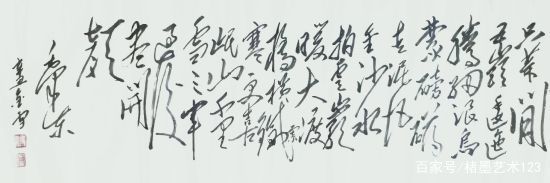 只等闲
五嶺逶迤
腾细浪烏
蒙磅礴
走泥丸
金沙水
拍雲巖
暖大渡
橋横鐵索
寒更喜
岷山千里
雪三军
过後
尽開
颜
百家号/楮墨艺术123